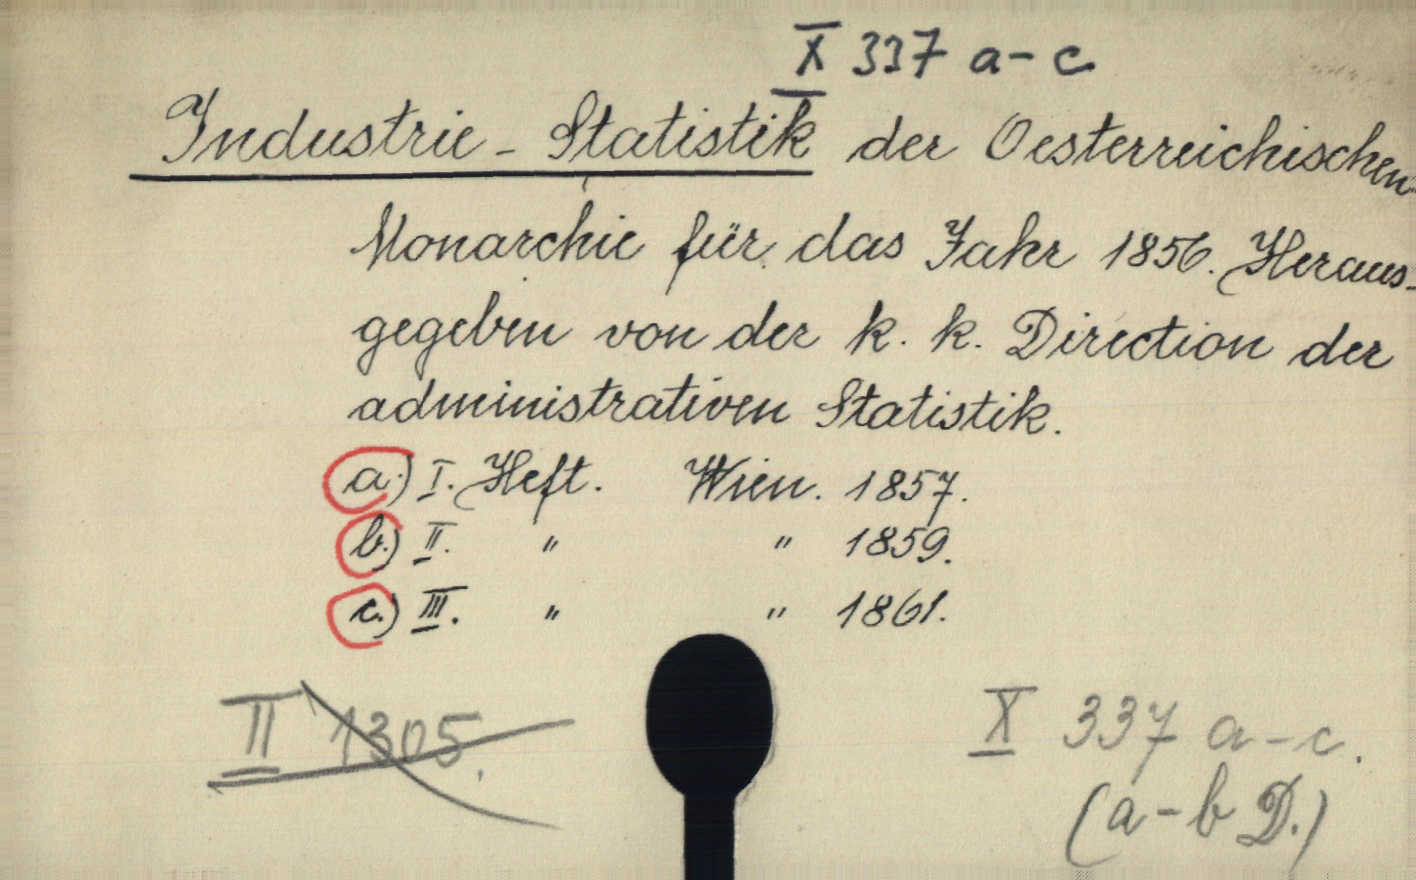 X 337 a-c
Industrie-Statistik der Oesterreichischen
Monarchie für das Jahr 1856. Heraus-
gegeben von der k. k. Direction der
administrativen Statistik.
a.) I. Heft. Wien. 1857.
b.) II. " " 1859.
c.) III. " " 1861.
II 1305.
X 337 a-c.
(a-b D.)